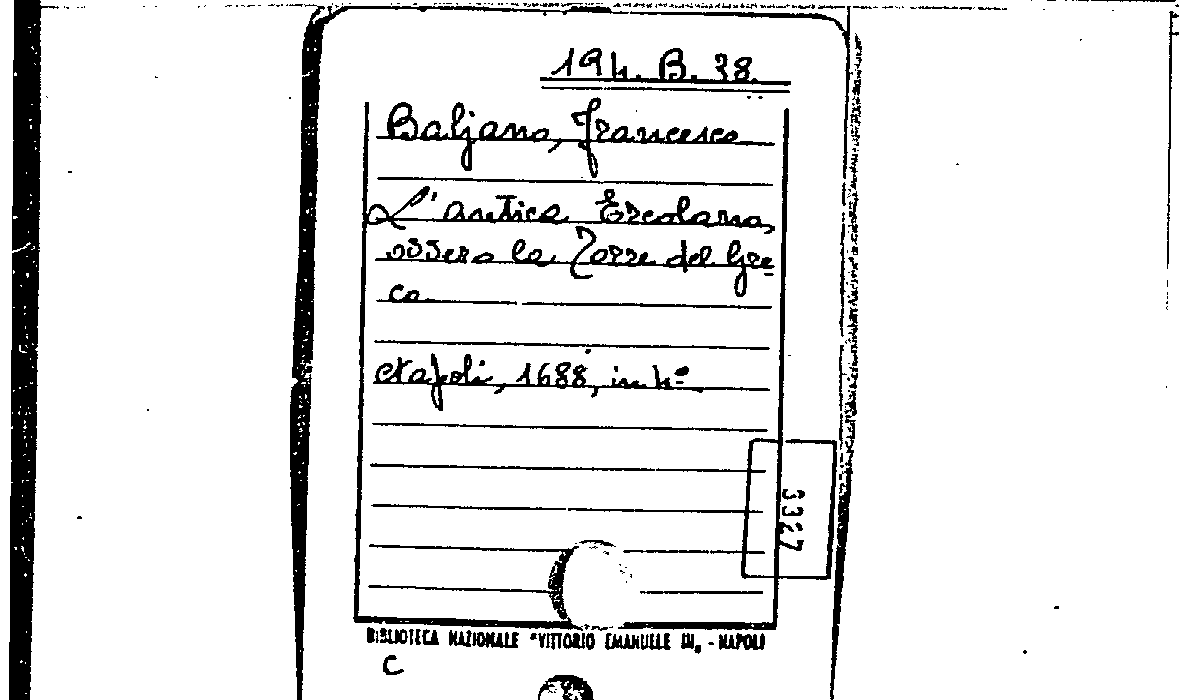 194. B. 38.
Baljano, Francesco
L'antica Ercolano,
ossero la Torre del Gre=
co
Napoli, 1688, in 4º
3327
BIBLIOTECA NAZIONALE "VITTORIO EMANUELE III„ - NAPOLI
C